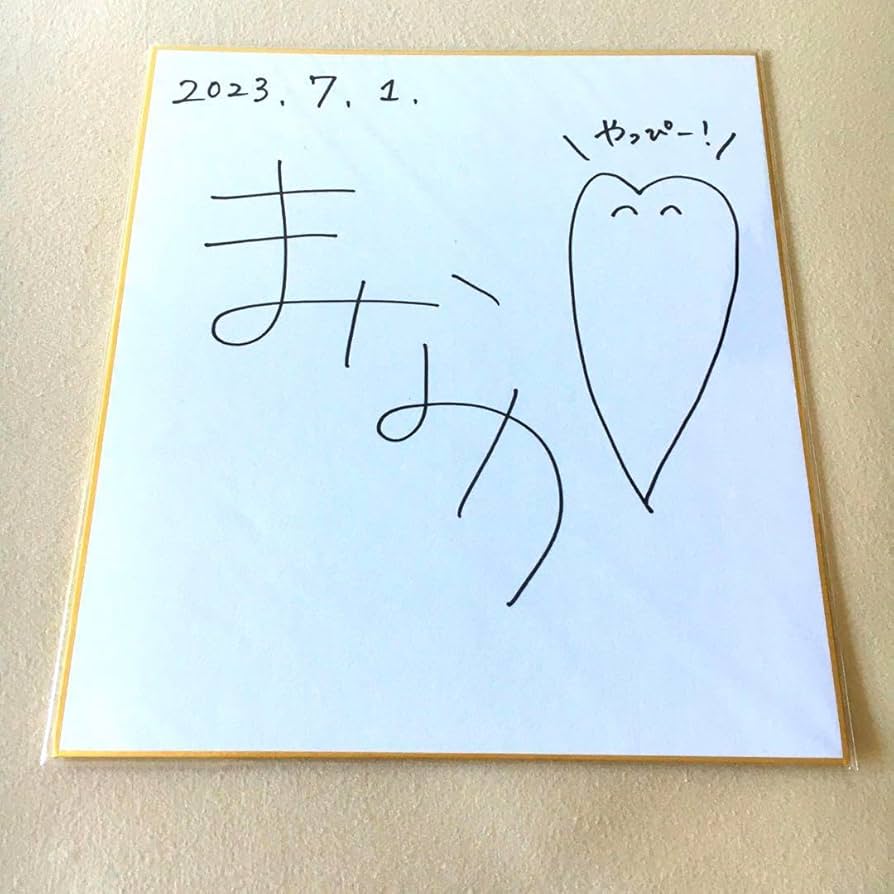 2023.7.1.
まなか
\やっぴー!/